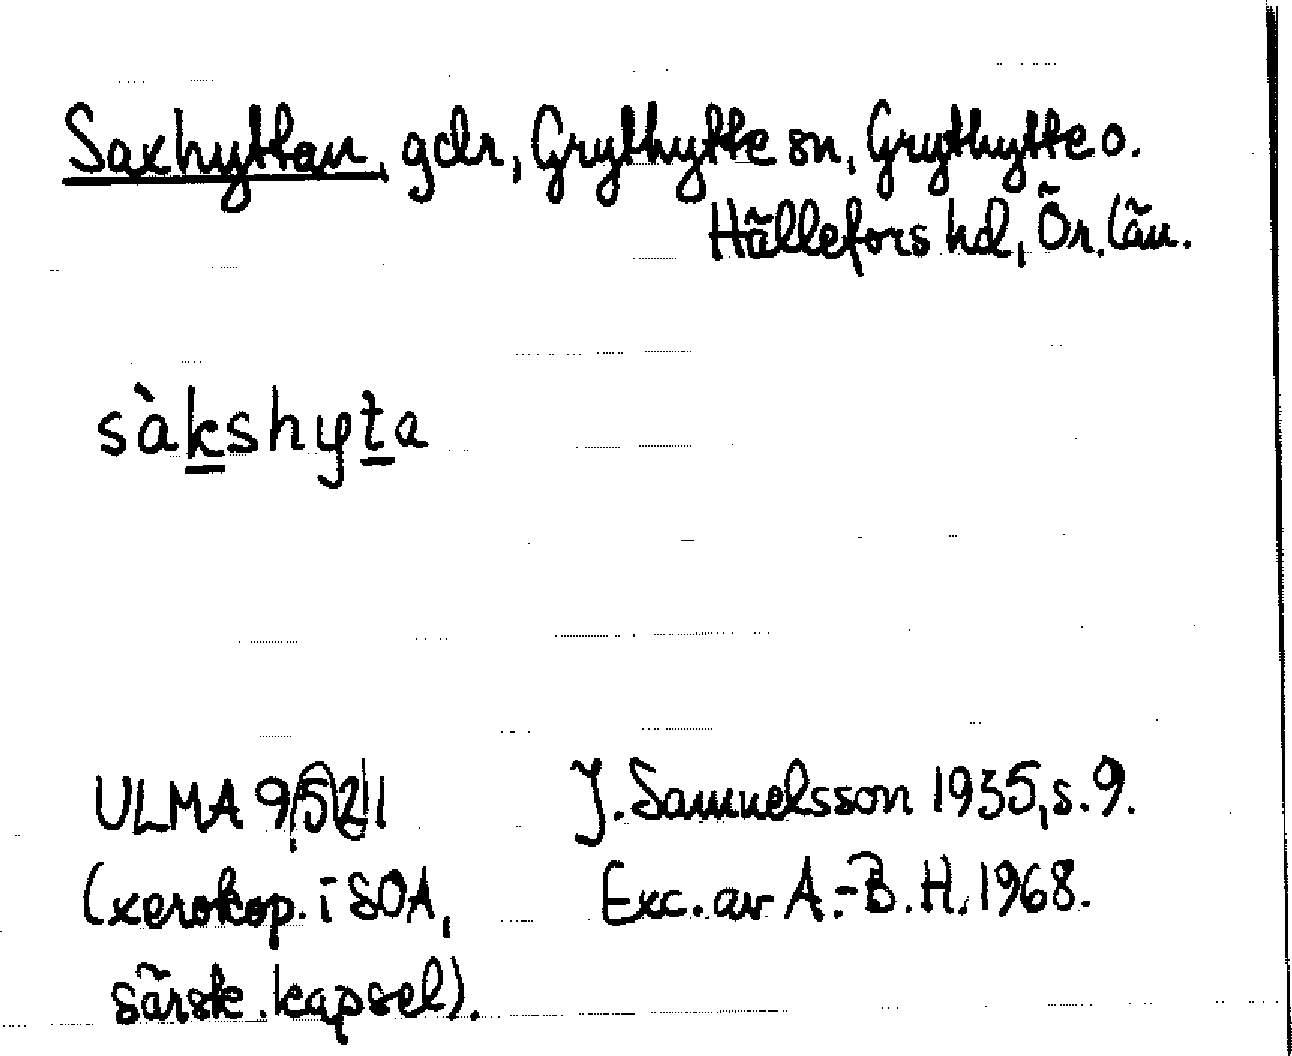 Saxhyttan, gdr, Grythytte sn, Grythytte o.
Hällefors hd, Ör. län.
sàkshyta
ULMA
J. Samuelsson 1935, s. 9.
(xerokop. i SOA,
Exc. av A.-B. H. 1968.
särsk. kapsel).